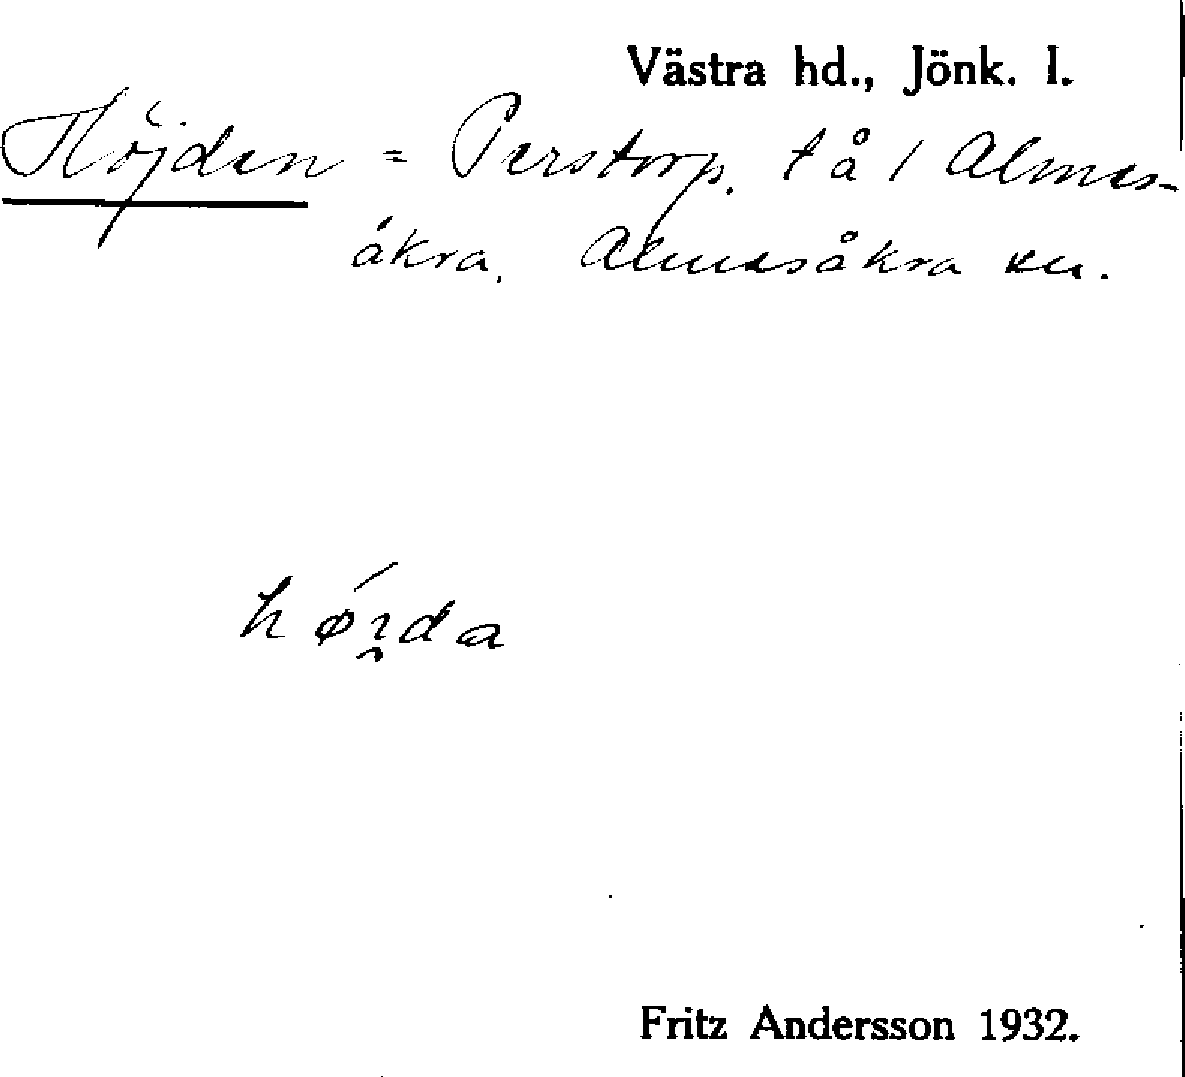 Västra hd., Jönk. l.
Höjden = Perstorp. t å 1 Almes-
åkra, Almesåkra sn.
hǿi̯da
Fritz Andersson 1932.